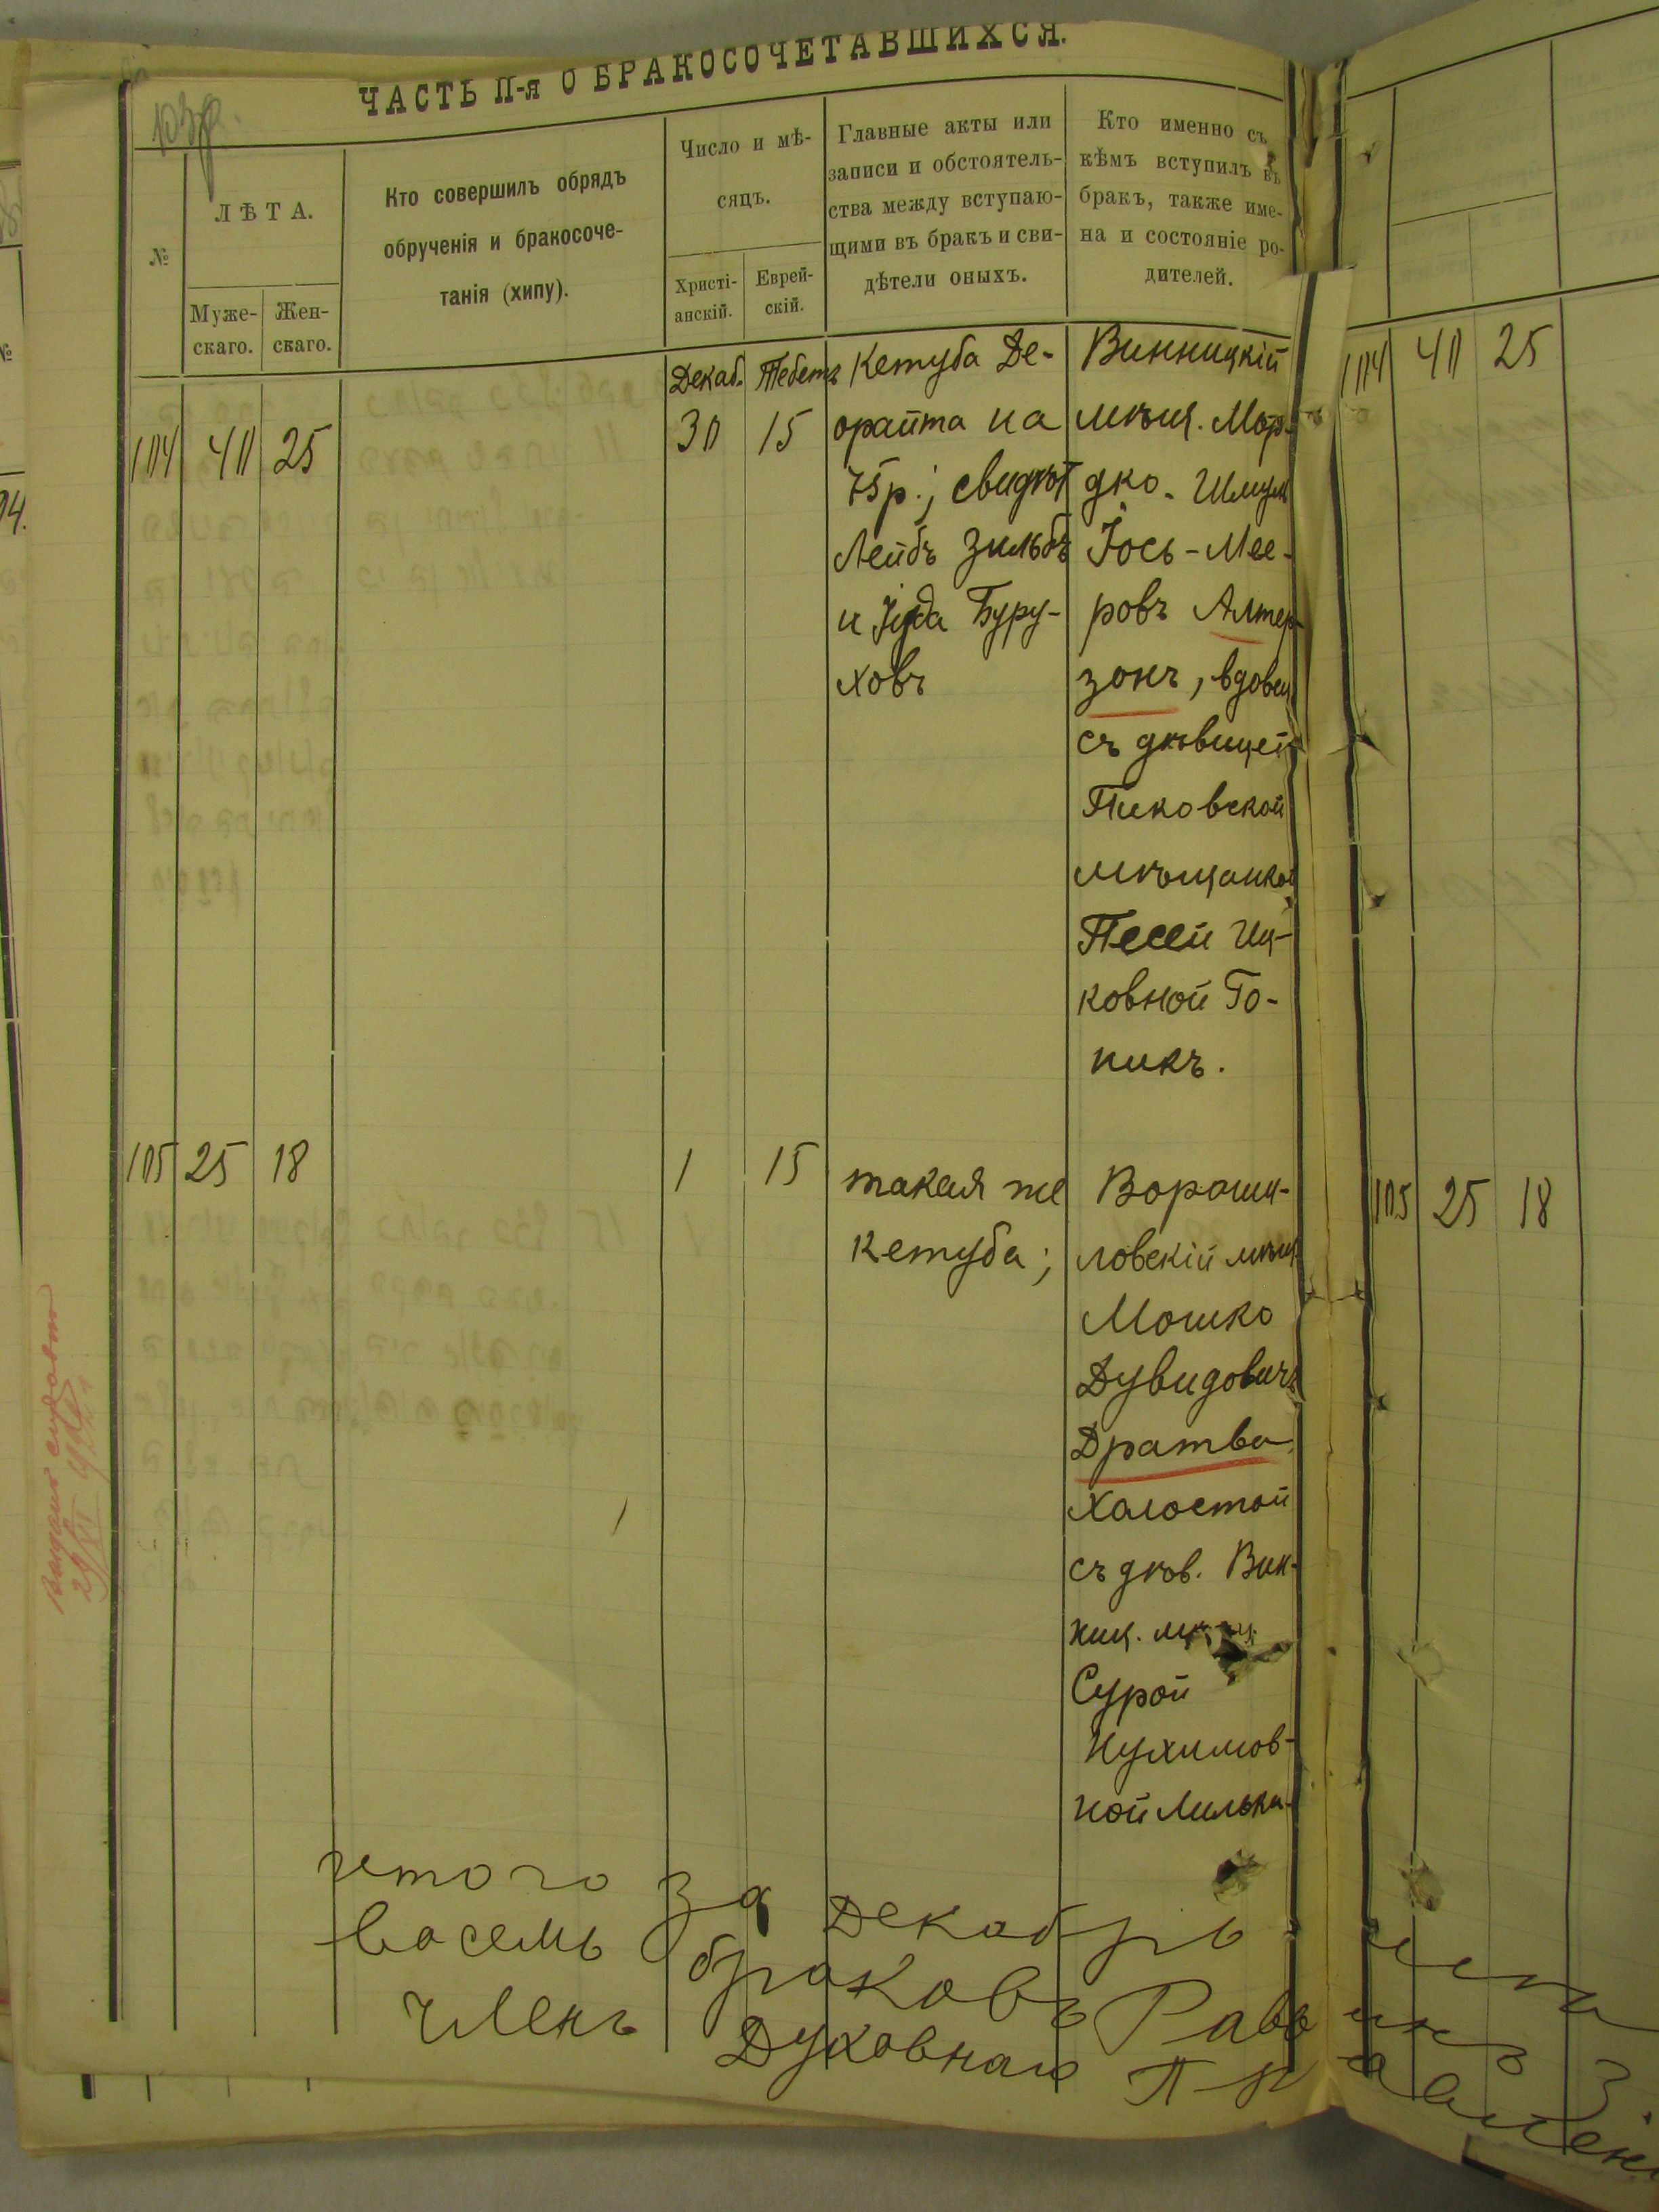 ЧАСТЬ II-я О БРАКОСОЧЕТАВШИХСЯ.
№
ЛѢТА.
Муже-
скаго.
Жен-
скаго.
Кто совершилъ обрядъ
обрученія и бракосоче-
танія (хипу).
Число и мѣ-
сяцъ.
Христі-
анскій.
Еврей-
скій.
Главные акты или
записи и обстоятель-
ства между вступаю-
щими въ бракъ и сви-
дѣтели оныхъ.
Кто именно съ
кѣмъ вступилъ въ
бракъ, также име-
на и состояніе ро-
дителей.
104 40 25
Декаб. Тебетъ
30 15
Кетуба Де-
орайта на
75 р.; свидѣт
Лейбъ Зильб
и Іуда Буру-
ховъ
Винницкій
мѣщ. Мор-
дко-Шмуль
Іось-Мее-
ровъ Алтер-
зонъ, вдовец
съ дѣвицей
Пиковской
мѣщанкой
Песей Иц-
ковной Го-
никъ.
105 25 18
1 15
такая же
кетуба;
Вороши-
ловскій мѣщ.
Мошко
Дувидовичъ
Дратва
холостой
съ дѣв. Вин-
ниц.
Сурой
Нухимов-
ной
итого за Декабрь
восемь браковъ
членъ Духовнаго
104 40 25
105 25 18